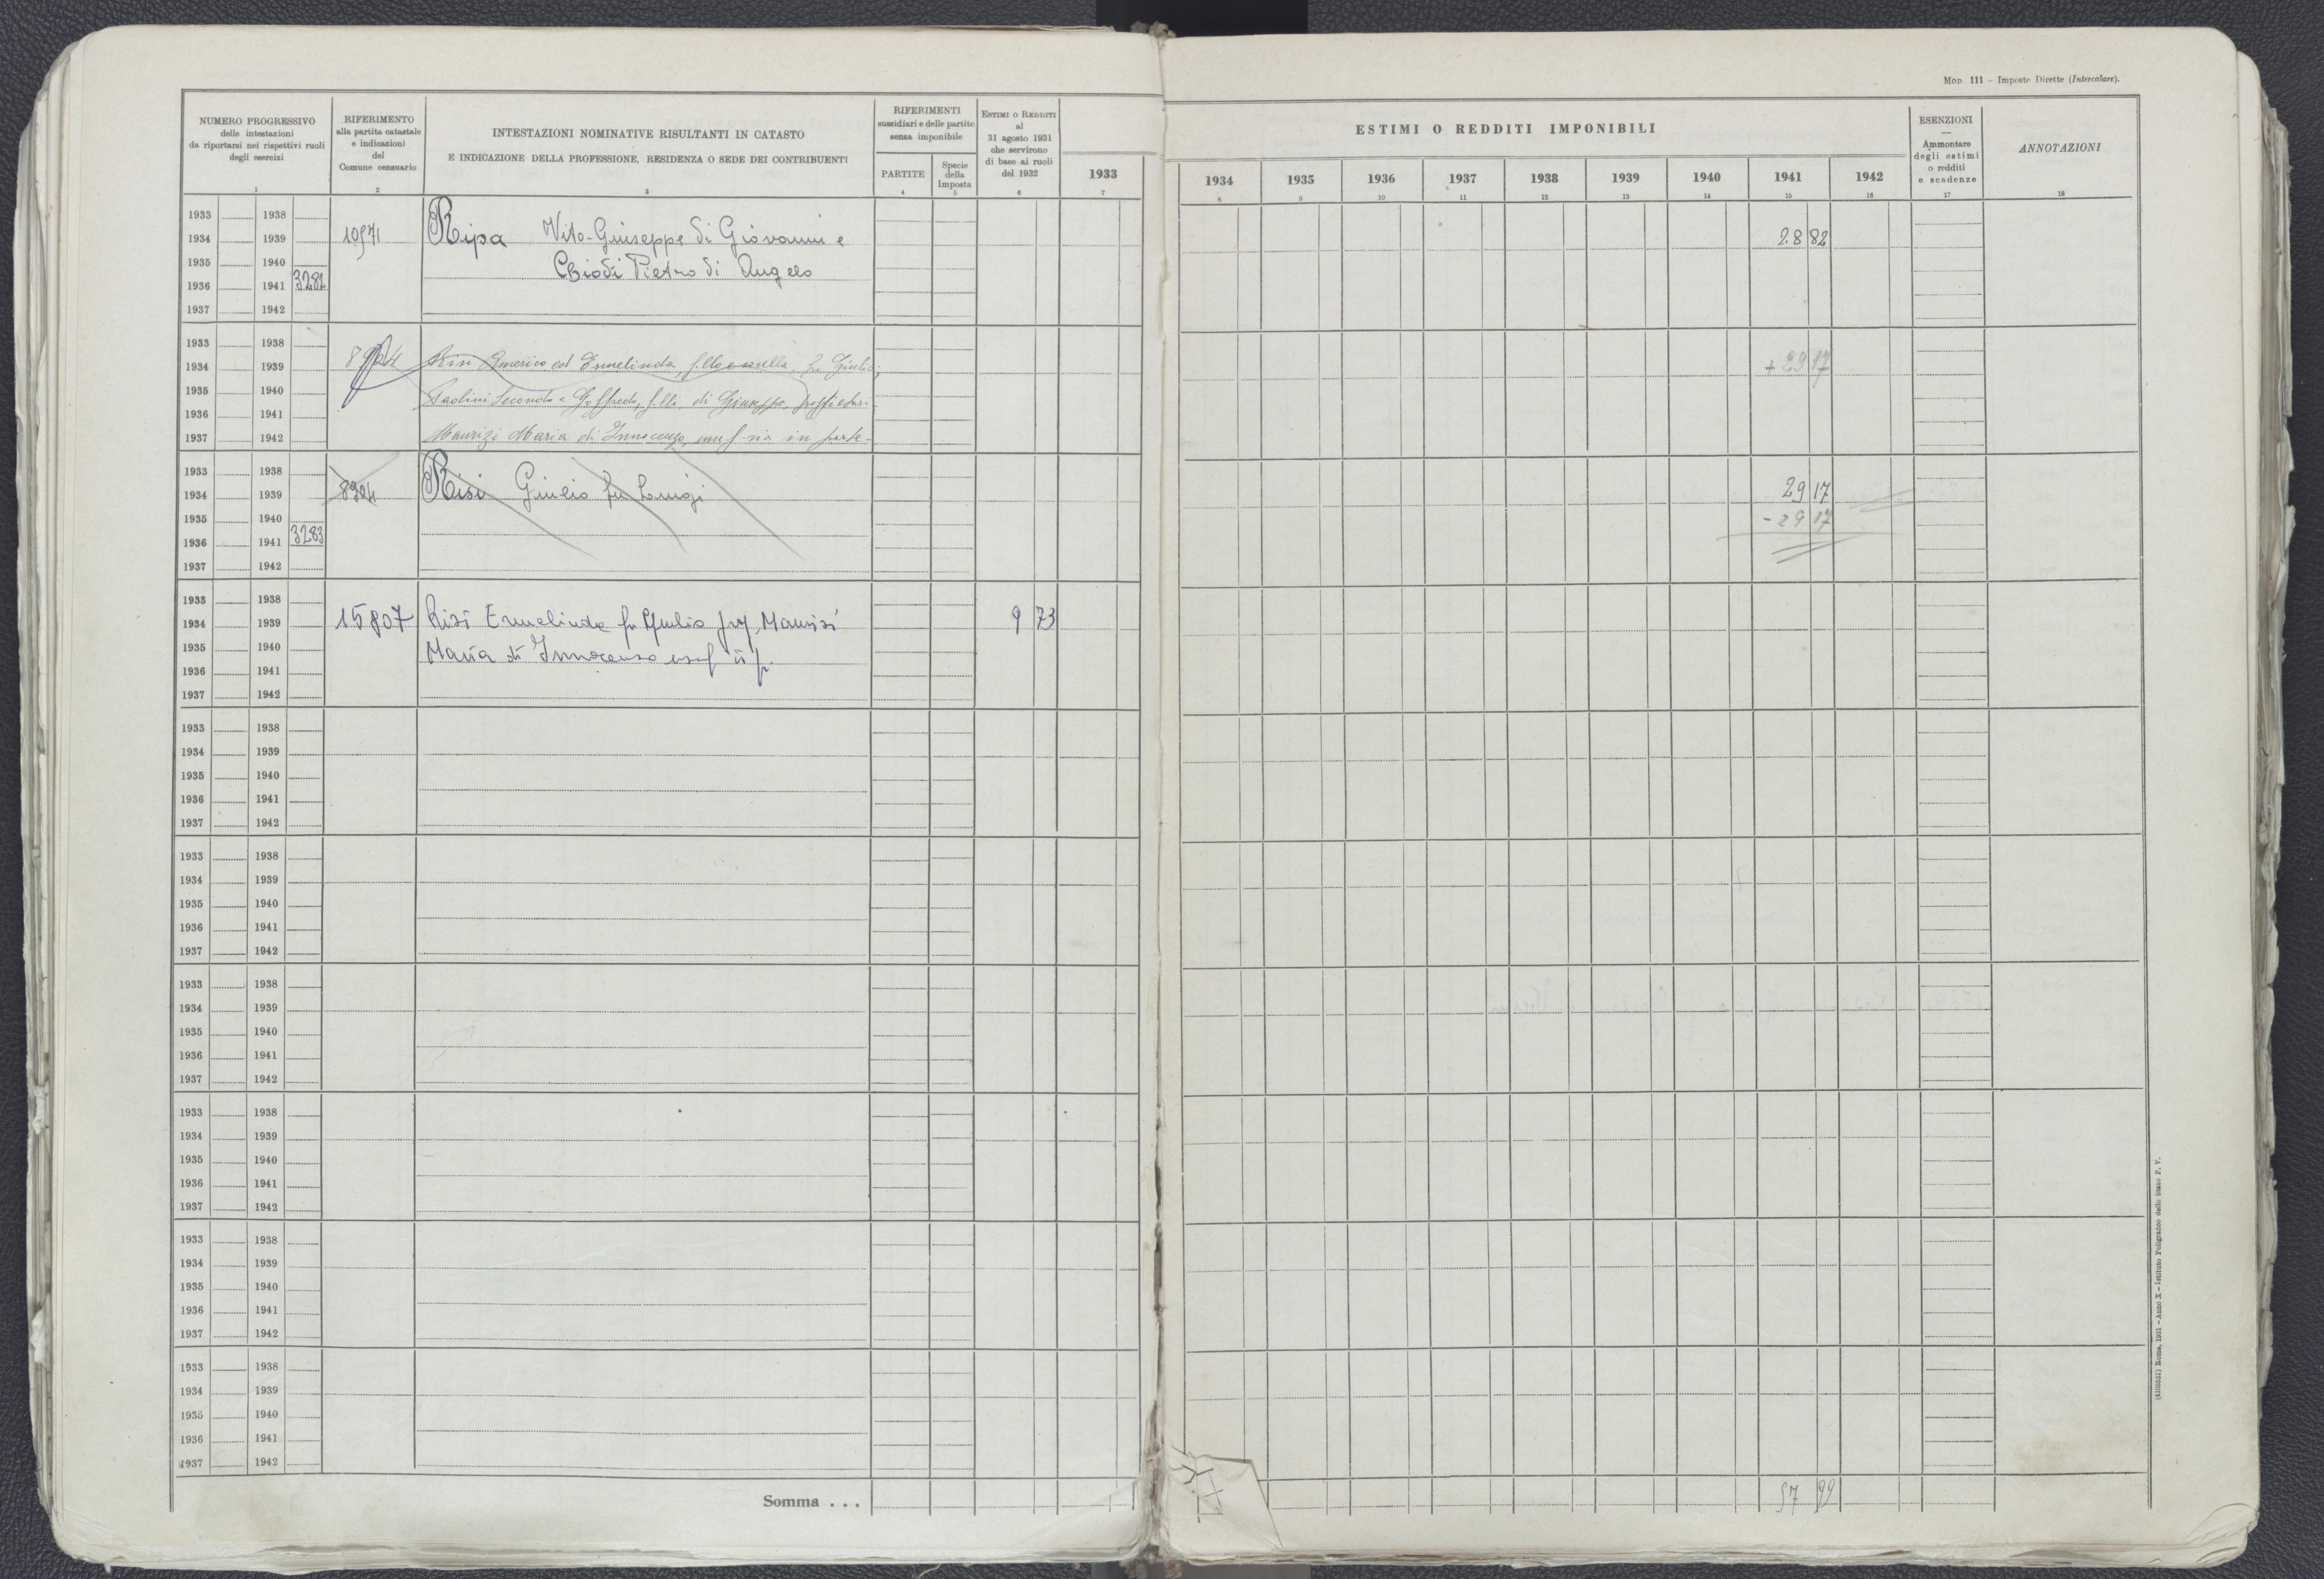 Mod. 111 - Imposte Dirette (Intercalare).
NUMERO PROGRESSIVO
delle intestazioni
da riportarsi nei rispettivi ruoli
degli esercizi
1
RIFERIMENTO
alla partita catastale
e indicazioni
del
Comune censuario
2
INTESTAZIONI NOMINATIVE RISULTANTI IN CATASTO
E INDICAZIONE DELLA PROFESSIONE, RESIDENZA O SEDE DEI CONTRIBUENTI
3
RIFERIMENTI
sussidiari e delle partite
senza imponibile
PARTITE
4
Specie
della
Imposta
5
ESTIMI O REDDITI
al
31 agosto 1931
che servirono
di base ai ruoli
del 1932
6
1933
7
ESTIMI O REDDITI IMPONIBILI
1934 1935 1936 1937 1938 1939 1940 1941 1942
8 9 10 11 12 13 14 15 16
ESENZIONI
—
Ammontare
degli estimi
o redditi
e scadenze
17
ANNOTAZIONI
18
1933 1938
1934 1939 10971 Ripa Vito-Giuseppe di Giovanni e 28 82
1935 1940 Chiodi Pietro di Angelo
1936 1941 3282
1937 1942
1933 1938
1934 1939 8924 Risi Americo ed Ermelinda, f.llo e sorella, fu Giulio; + 29 17
1935 1940 Paolini Secondo e Goffredo, f.lli, di Giuseppe, proprietari
1936 1941
1937 1942 Maurizi Maria di Innocenzo, usuf.ria in parte-
1933 1938
1934 1939 8924 Risi Giulio fu Luigi 29 17
1935 1940 - 29 17
1936 1941 3283
1937 1942
1933 1938
1934 1939 15807 Risi Ermelinda fu Giulio prop. Maurizi 9 73
1935 1940 Maria di Innocenzo usuf in p.
1936 1941
1937 1942
1933 1938
1934 1939
1935 1940
1936 1941
1937 1942
1933 1938
1934 1939
1935 1940
1936 1941
1937 1942
1933 1938
1934 1939
1935 1940
1936 1941
1937 1942
1933 1938
1934 1939
1935 1940
1936 1941
1937 1942
1933 1938
1934 1939
1935 1940
1936 1941
1937 1942
1933 1938
1934 1939
1935 1940
1936 1941
1937 1942
Somma . . . 57 99
(4103551) Roma, 1931 - Anno X - Istituto Poligrafico dello Stato P. V.